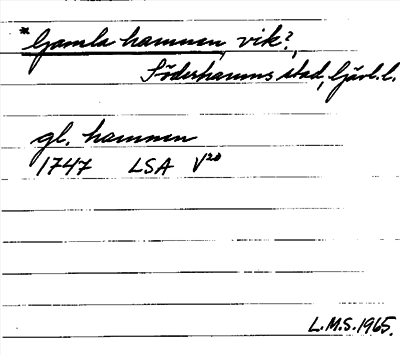 *Gamla hamnen, vik?,
Söderhamns stad, Gävl.l.
gl. hamnen
1747 LSA V20
L.M.S. 1965.